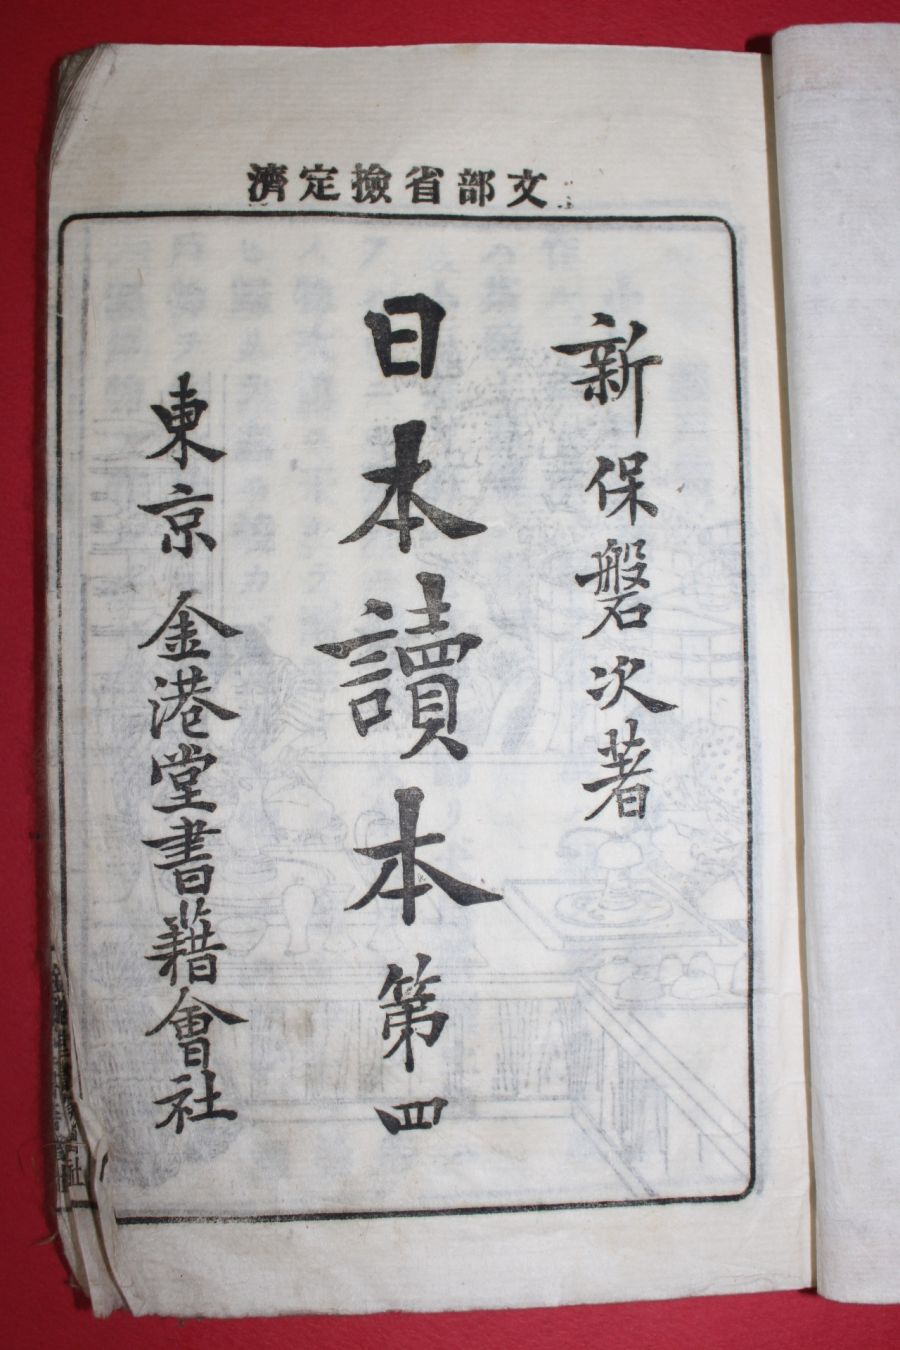 文部省撿定濟
新保磐次著
日本讀本第四
東京金港堂書籍會社